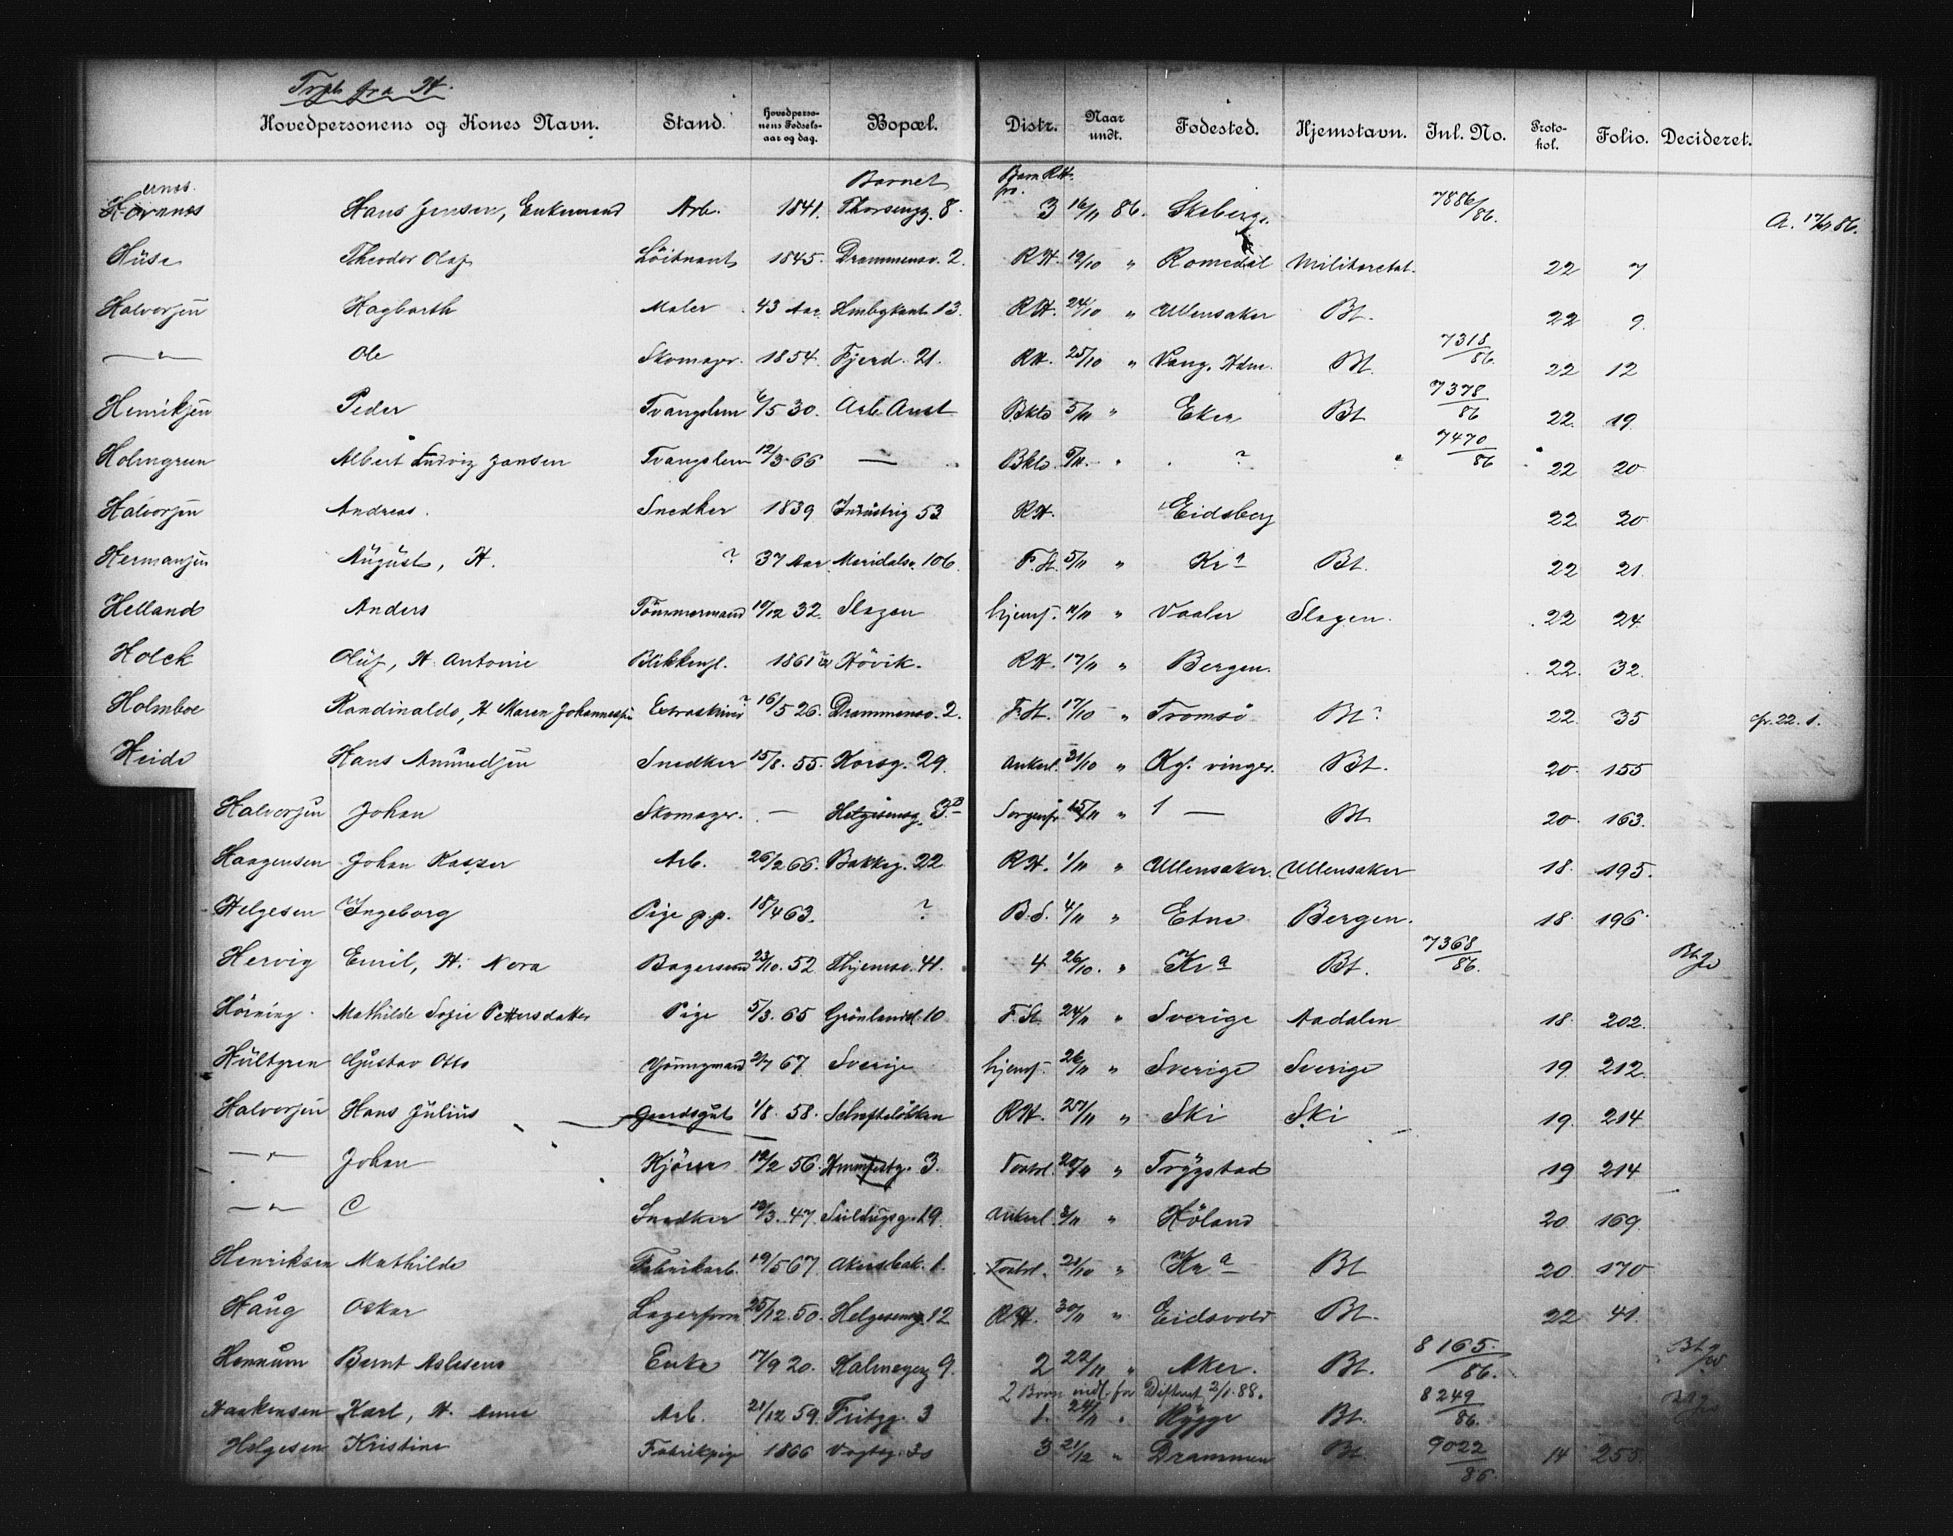 Hovedpersonens og Kones Navn. Stand. Hovedpersonens Fødselsaar og dag. Bopæl. Distr. Naar undt. Fødested. Hjemstavn. Jnl. No. Protokol. Folio. Decideret.
Barnet
Hans Jensen, Enkemand Arb. 1841. Thorsengg. 8. 3 16/11 86. 7886/86. A. 86.
Hüse Theodor Olaf Löitnant 1845. Drammensv. 2. R.H. 19/10 " Romedal Militæretat. 22 7
Halvorsen Hagbarth Maler 43 Aar 13. R.H. 24/10 " Ullensaker Bt. 22 9.
—"— Ole Skomager. 1854. Fjerd. 21. R.H. 25/10 " Vang, Hdm. Bt. 7318/86. 22 12
Henriksen Peder Tvangslem 6/5 30. Arb. Anst. Bkld. 5/11 " Eker Bt 7378/86 22. 19
Holmgreen Albert Ludvig Jansen Tvangslem 12/3 66 — Bkld. 5/11. " ? 7470/86 22 20
Halvorsen Andreas. Snedker 1839 Industrig 53 R.H. Eidsberg 22 20
Hermansen August, H. ? 37 Aar Maridalsv. 106. F.H. 5/11 " Kra Bt. 22 21.
Helland Anders Tömmermand 19/12 32. Slagen hjemf. 11/11 " Vaaler Slagen. 22 24
Holck Oluf, H. Antonie Blikkensl. 1861 Hövik. R.H. 17/11 " Bergen. 22. 32.
Holmboe Randinaldo, H. Maren Johannesen 16/5 26. Drammensv. 2. F.H. 17/10 " Tromsö Bt? 22. 35 cfr. 22. 1.
Heide Hans Amundsen Snedker 15/8. 55. Korsg. 29. Ankerl. 31/10 " Kgs. vinger. Bt. 20. 155
Halvorsen Johan Skomager. — Helgesensg. 3B Sorgenfr. 15/11 " — Bt 20. 163.
Haagensen Johan Kasper Arb. 26/2 66. Bakkeg. 22 R.H. 1/11 " Ullensaker. Ullensaker 18. 195.
Helgesen Ingeborg Pige p.p. 18/4 63. ? B.S. 4/11 " Etne Bergen. 18. 196.
Hervig Emil, H. Nora Bagersvend 23/10. 52 41. 4 26/10. " Kra Bt. 7368/86. Bt
Hörning Mathilde Sofie Pettersdatter Pige 5/3. 65 Grönlandsl. 10 F.H. 24/11 " Sverige Aadalen 18. 202.
Hultgren Gustav Otto Gjöungmand 2/7 67. Sverige hjemf. 26/11 " Sverige Sverige 19. 212.
Halvorsen Hans Julius Gaardsgut 1/8. 58. Schafteløkken R.H. 25/11 " Ski Ski 19. 214
—"— Johan Kjörer 12/2 56. 3. Toxtel. 20/11 " Trygstad 19 214
—"— C Snedker 19/3. 47. Seildugsg. 19. Ankerl. 3/11 " Höland 20. 169.
Henriksen Mathilde Fabrikarb. 19/5 67. Akersbak. 1. Toxtel. 21/10 " Kra Bt 20. 170
Haug Oskar Lagerform. 25/12. 50. Helgesensg. 12 R.H. 30/11 " Eidsvold Bt. 22 41.
Hennum Bernt Aslesens Enke 17/9 20. Kalmeyerg 9. 2 22/11 " Aker. Bt. 8165/86. Bt
2 Børn indl. for Distrect 2/1. 88.
Haakensen Karl, H. Anne Arb. 21/12 59. Fritzg. 3 1. 24/11 " Rygge Bt. 8249/86.
Helgesen Kristine Fabrikpige 1866 Vogtsg. 30 3 21/12 " Drammen Bt. 9022/86. 14 255.